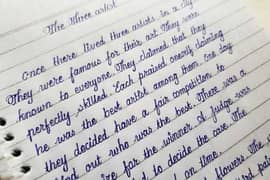 The three artist
Once there lived three artists in a city
They were famous for their art They were
known to everyone. They claimed that they
perfectly skilled. Each praised onerly claiming
he was the best artist among them. One day
they decided have a fair competition to
out who was the best. There was a
for the winner. A judge was
to decide the case. The
on time.
flowers. The